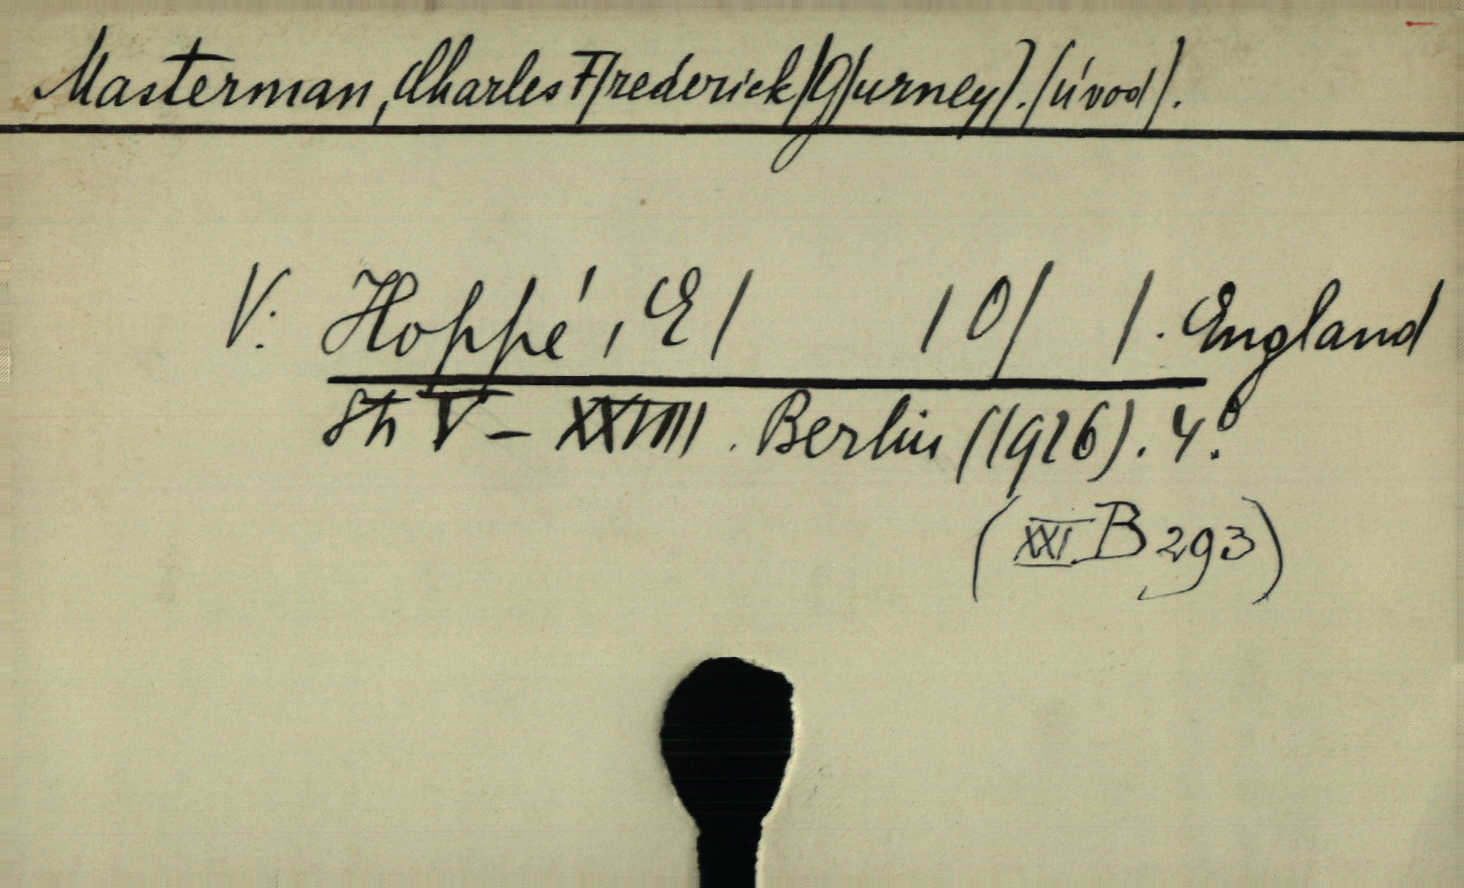 Masterman, Charles F/rederick/ G/urney/. /úvod/.
V: Hoppé, E/ / O/ /. England
Str V – XXVIII. Berlin /1926/. 4°.
(XXI B 293)